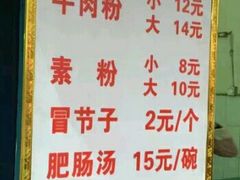 牛肉粉 小 12元
大 14元
素粉 小 8元
大 10元
冒节子 2元/个
肥肠汤 15元/碗